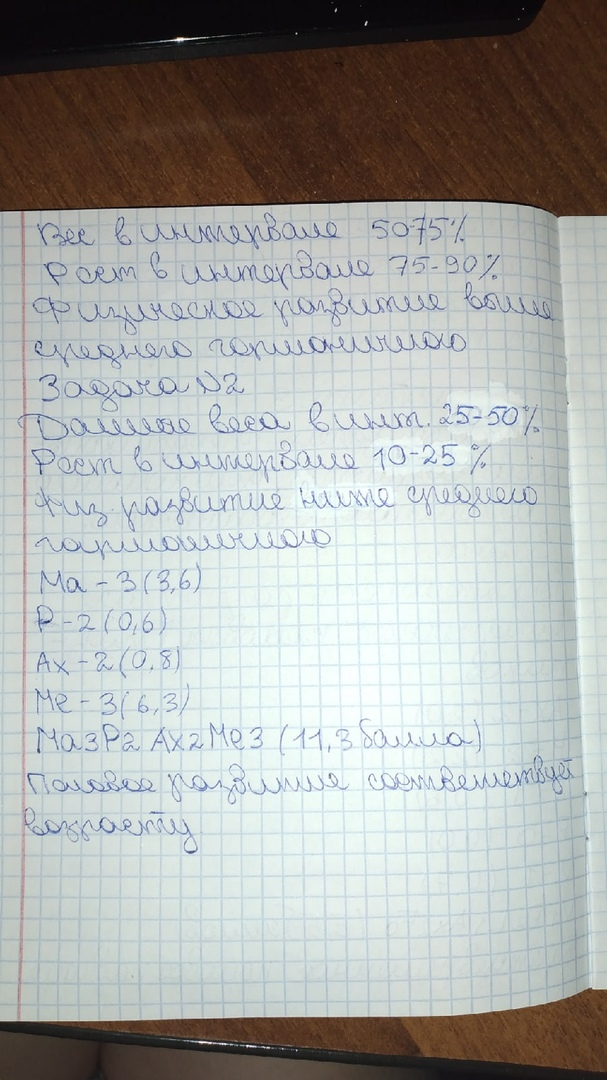 Вес в интервале 5075%
Рост в интервале 75-90%
Физическое развитие выше
среднего гармоничного
Задача №2
Данные веса в инт. 25-50%
Рост в интервале 10-25%
Физ развитие ниже среднего
гармоничного
Ma - 3 (3,6)
P - 2 (0,6)
Ax - 2 (0,8)
Me - 3 (6,3)
Ma3P2 Ax2Me3 (11,3 балла)
Половое развитие соответствует
возрасту